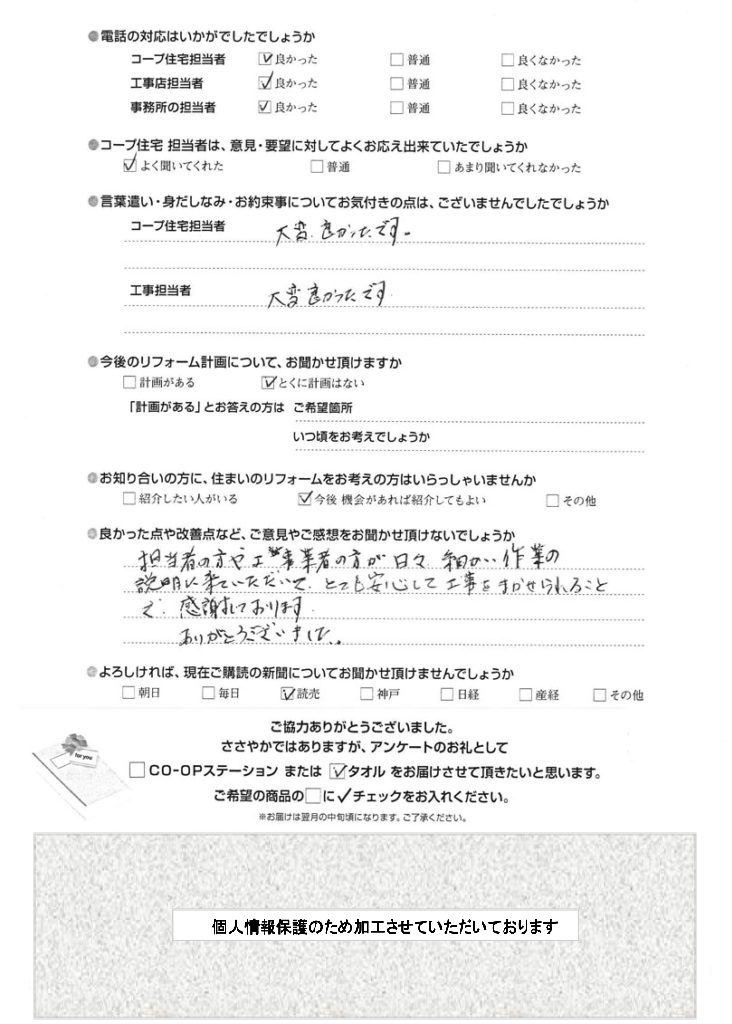 ●電話の対応はいかがでしたでしょうか
コープ住宅担当者 ☑良かった □普通 □良くなかった
工事店担当者 ☑良かった □普通 □良くなかった
事務所の担当者 ☑良かった □普通 □良くなかった
●コープ住宅 担当者は、意見・要望に対してよくお応え出来ていたでしょうか
☑よく聞いてくれた □普通 □あまり聞いてくれなかった
●言葉遣い・身だしなみ・お約束事についてお気付きの点は、ございませんでしたでしょうか
コープ住宅担当者 大変良かったです。
工事担当者 大変良かったです
●今後のリフォーム計画について、お聞かせ頂けますか
□計画がある ☑とくに計画はない
「計画がある」とお答えの方は ご希望箇所
いつ頃をお考えでしょうか
●お知り合いの方に、住まいのリフォームをお考えの方はいらっしゃいませんか
□紹介したい人がいる ☑今後 機会があれば紹介してもよい □その他
●良かった点や改善点など、ご意見やご感想をお聞かせ頂けないでしょうか
担当者の方や工事業者の方が日々、細かい作業の
説明に来ていただいて、とても安心して工事をまかせられること
で、感謝しております。
ありがとうございました。
●よろしければ、現在ご購読の新聞についてお聞かせ頂けませんでしょうか
□朝日 □毎日 ☑読売 □神戸 □日経 □産経 □その他
ご協力ありがとうございました。
ささやかではありますが、アンケートのお礼として
for you
□CO-OPステーション または ☑タオル をお届けさせて頂きたいと思います。
ご希望の商品の□に✓チェックをお入れください。
※お届けは翌月の中旬頃になります。ご了承ください。
個人情報保護のため加工させていただいております